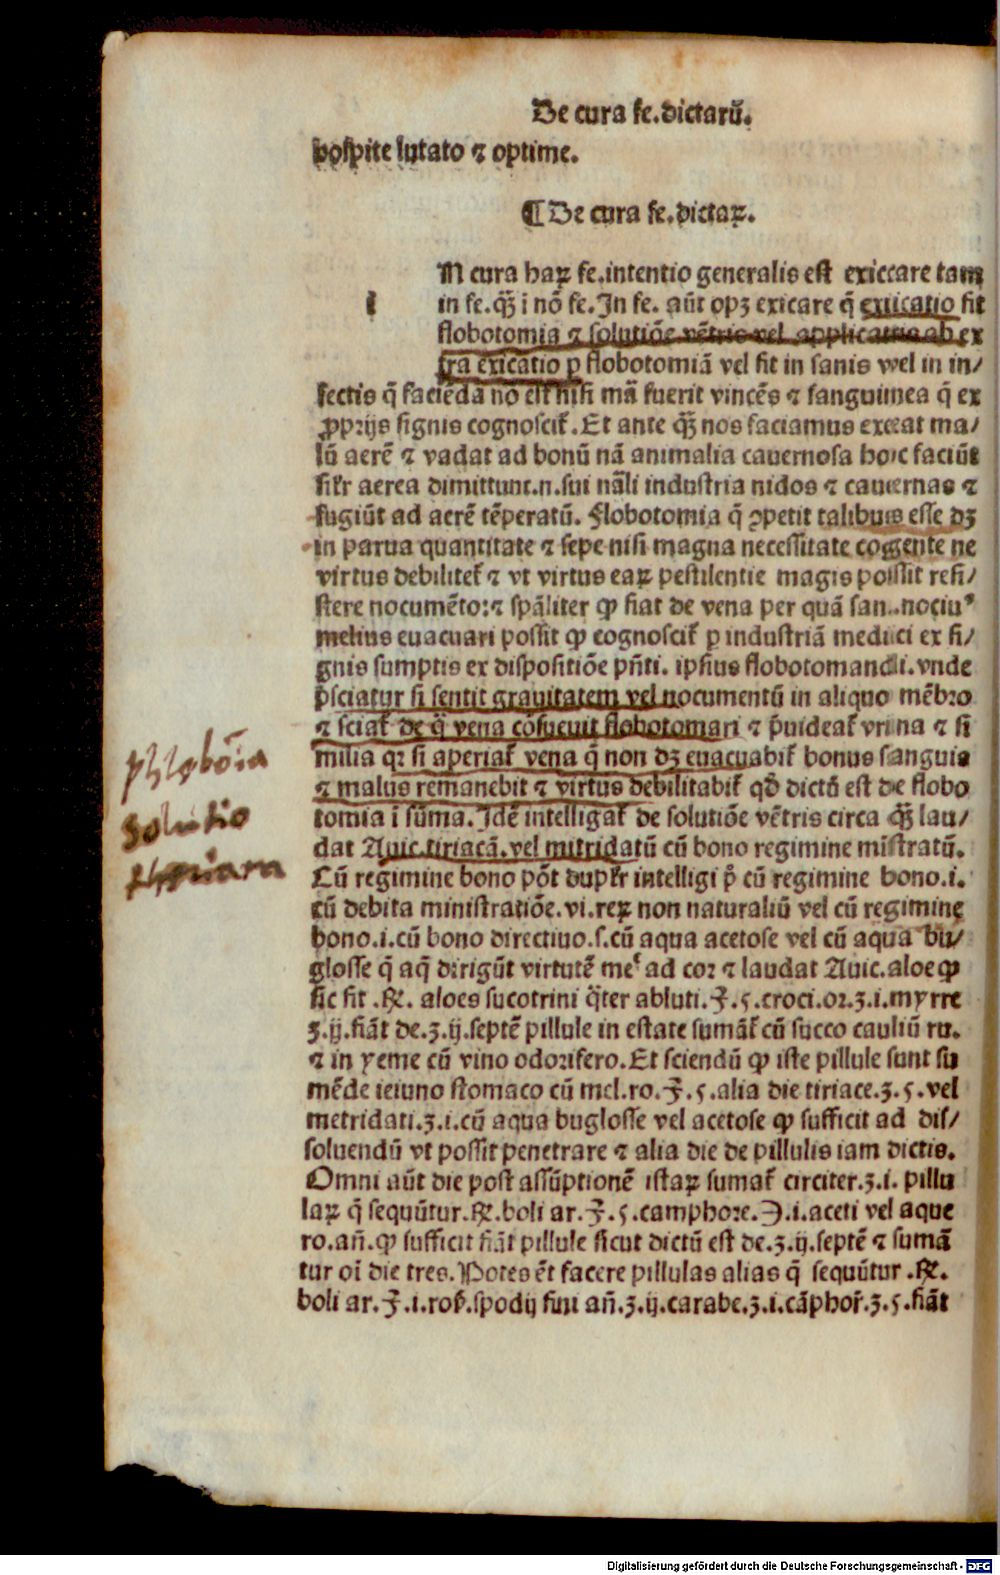 De cura fe. dictarū.
hoſpite lutato ⁊ optime.
¶ De cura fe. dictaꝝ.
i
M cura haꝝ fe. intentio generalis eſt exiccare tam
in fe. q̄ꝫ i nō fe. In fe. aūt opꝫ exicare q̄ exiicatio fit
flobotomia ⁊ ſolutiōe vētris vel applicatiis ab ex
tra exicatio ꝑ flobotomiā vel fit in ſanis vvel in in/
fectis q̄ faciēda nō eſt niſi mā fuerit vincēs ⁊ ſanguinea q̄ ex
ꝓprijs ſignis cognoſcit̄. Et ante q̄ꝫ nos faciamus exeat ma/
lū aerē ⁊ vadat ad bonū nā animalia cauernoſa hoc faciūt
ſil̄r aerea dimittunt .n. ſui nāli induſtria nidos ⁊ cauernas ⁊
fugiūt ad aerē tēperatū. Flobotomia q̄ ꝯpetit talibus eſſe dꝫ
in parua quantitate ⁊ ſepe niſi magna neceſſitate cogente ne
virtus debilitet̄ ⁊ vt virtus eaꝝ peſtilentie magis poſſit reſi/
ſtere nocumēto: ⁊ ſpāliter ꝙ fiat de vena per quā ſan. nociuꝰ
melius euacuari poſſit ꝙ cognoſcit̄ ꝑ induſtriā medici ex ſi/
gnis ſumptis ex diſpoſitiōe pn̄ti. ipſius flobotomandi. vnde
p̄ſciatur ſi ſentit grauitatem vel nocumentū in aliquo mēbro
⁊ ſciat̄ de q̄ vena cōſueuit flobotomari ⁊ p̄uideat̄ vrina ⁊ ſi
milia qꝛ ſi aperiat̄ vena q̄ non dꝫ euacuabit̄ bonus ſanguis
⁊ malus remanebit ⁊ virtus debilitabit̄ qd̄ dictū eſt de flobo
tomia ī ſūma. Idē intelligat̄ de ſolutiōe vētris circa q̄ꝫ lau/
dat Auic. tiriacā. vel mitridatū cū bono regimine miſtratū.
Cū regimine bono pōt dupl̄r intelligi p̄º cū regimine bono .i.
cū debita miniſtratiōe .vi. reꝝ non naturaliū vel cū regimine
bono .i. cū bono directiuo .ſ. cū aqua acetoſe vel cū aqua bu/
gloſſe q̄ aq̄ dirigūt virtutē meᵈ ad cor ⁊ laudat Auic. aloe ꝙ
ſic fit .℞. aloes ſucotrini q̄ter abluti .℥.ʒ. croci .or.ʒ.i. myrre
ʒ.ij. fiāt de .ʒ.ij. ſeptē pillule in eſtate ſumāt̄ cū ſucco cauliū ru.
⁊ in yeme cū vino odorifero. Et ſciendū ꝙ iſte pillule ſunt ſu
mēde ieiuno ſtomaco cū mel. ro .℥.ʒ. alia die tiriace .ʒ.ʒ. vel
metridati .ʒ.i. cū aqua bugloſſe vel acetoſe ꝙ ſufficit ad diſ/
ſoluendū vt poſſit penetrare ⁊ alia die de pillulis iam dictis.
Omni aūt die poſt aſſūptionē iſtaꝝ ſumat̄ circiter .ʒ.i. pillu
laꝝ q̄ ſequūtur .℞. boli ar .℥.ʒ. camphore .℈.i. aceti vel aque
ro. an̄. ꝙ ſufficit fiāt pillule ſicut dictū eſt de .ʒ.ij. ſeptē ⁊ ſumā
tur oī die tres. Potes ēt facere pillulas alias q̄ ſequūtur .℞.
boli ar .℥.i. roſ. ſpodij ſini an̄ .ʒ.ij. carabe .ʒ.i. cāphor̄ .ʒ.ʒ. fiāt
phlebōia
Solutio
tyriara
Digitalisierung gefördert durch die Deutsche Forschungsgemeinschaft - DFG